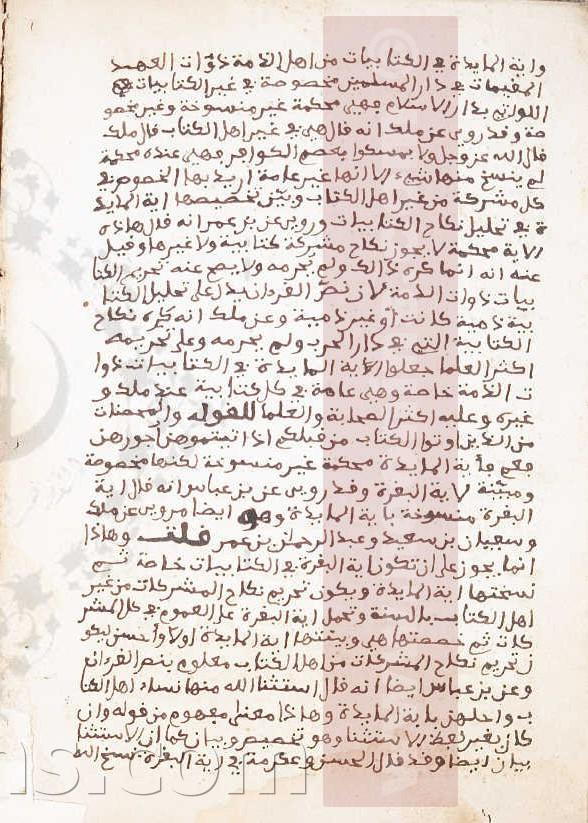 واية المايدة في الكتابيات من اهل الذمة ذوات العهد
المقيمات في دار المسلمين مخصوصة في غير الكتابيات
اللواتي بدار الاسلام فهي محكمة غير منسوخة وغير مخصو
صة وقد روي عن ملك انه قال هي في غير اهل الكتاب قال ملك
قال الله عز وجل ولا تمسكوا بعصم الكوافر فهي عنده محكمة
لم ينسخ منها شيء الا انها غير عامة اريد بها الخصوص في
كل مشركة من غير اهل الكتاب وبين تخصيصها اية المايد
ة في تحليل نكاح الكتابيات وروي عن بن عمر انه قال هاذه
الاية محكمة لا يجوز نكاح مشركة كتابية ولا غيرها وقيل
عنه انه انما كره ذالك ولم يحرمه ولا يصح عنه تحريم الكتا
بيات ذوات الذمة لان نص القرءان يدل على تحليل الكتا
بية ذمية كانت او غير ذمية وعن ملك انه كره نكاح
الكتابية التي في دار الحرب ولم يحرمه وعلى تحريمه
اكثر العلما جعلوا الاية المايدة في الكتابيات ذوا
ت الذمة خاصة وهي عامة في كل كتابية عند ملك و
غيره وعليه اكثر الصحابة والعلما لقوله والمحصنات
من الذين اوتوا الكتاب من قبلكم اذا اتيتموهن اجورهن
فعم فاية المايدة محكمة غير منسوخة لكنها مخصوصة
ومبينة لاية البقرة وقد روي عن بن عباس انه قال اية
البقرة منسوخة باية المايدة وهو ايضا مروي عن ملك
وسفيان بن سعيد وعبد الرحمان بن عمر قلت وهاذا
انما يجوز على ان تكون اية البقرة في الكتابيات خاصة ثم
نسختها اية المايدة ويكون تحريم نكاح المشركات من غير
اهل الكتاب بالسنة وتحمل اية البقرة على العموم في كل المشر
كات ثم خصصتها هي وبينتها اية المايدة اولا واحسن ليكو
ن تحريم نكاح المشركات من اهل الكتب معلوم بنص القرءان
وعن بن عباس ايضا انه قال استثنا الله منها نساء اهل الكتا
ب واحلهن باية المايدة وهاذا معنى مفهوم من قوله وان
كان بغير لفظ الاستثنا وهو تخصيص وبيان كما ان الاستثنا
بيان ايضا وقد قال الحسن وعكرمة في اية البقرة نسخ الله
is.com